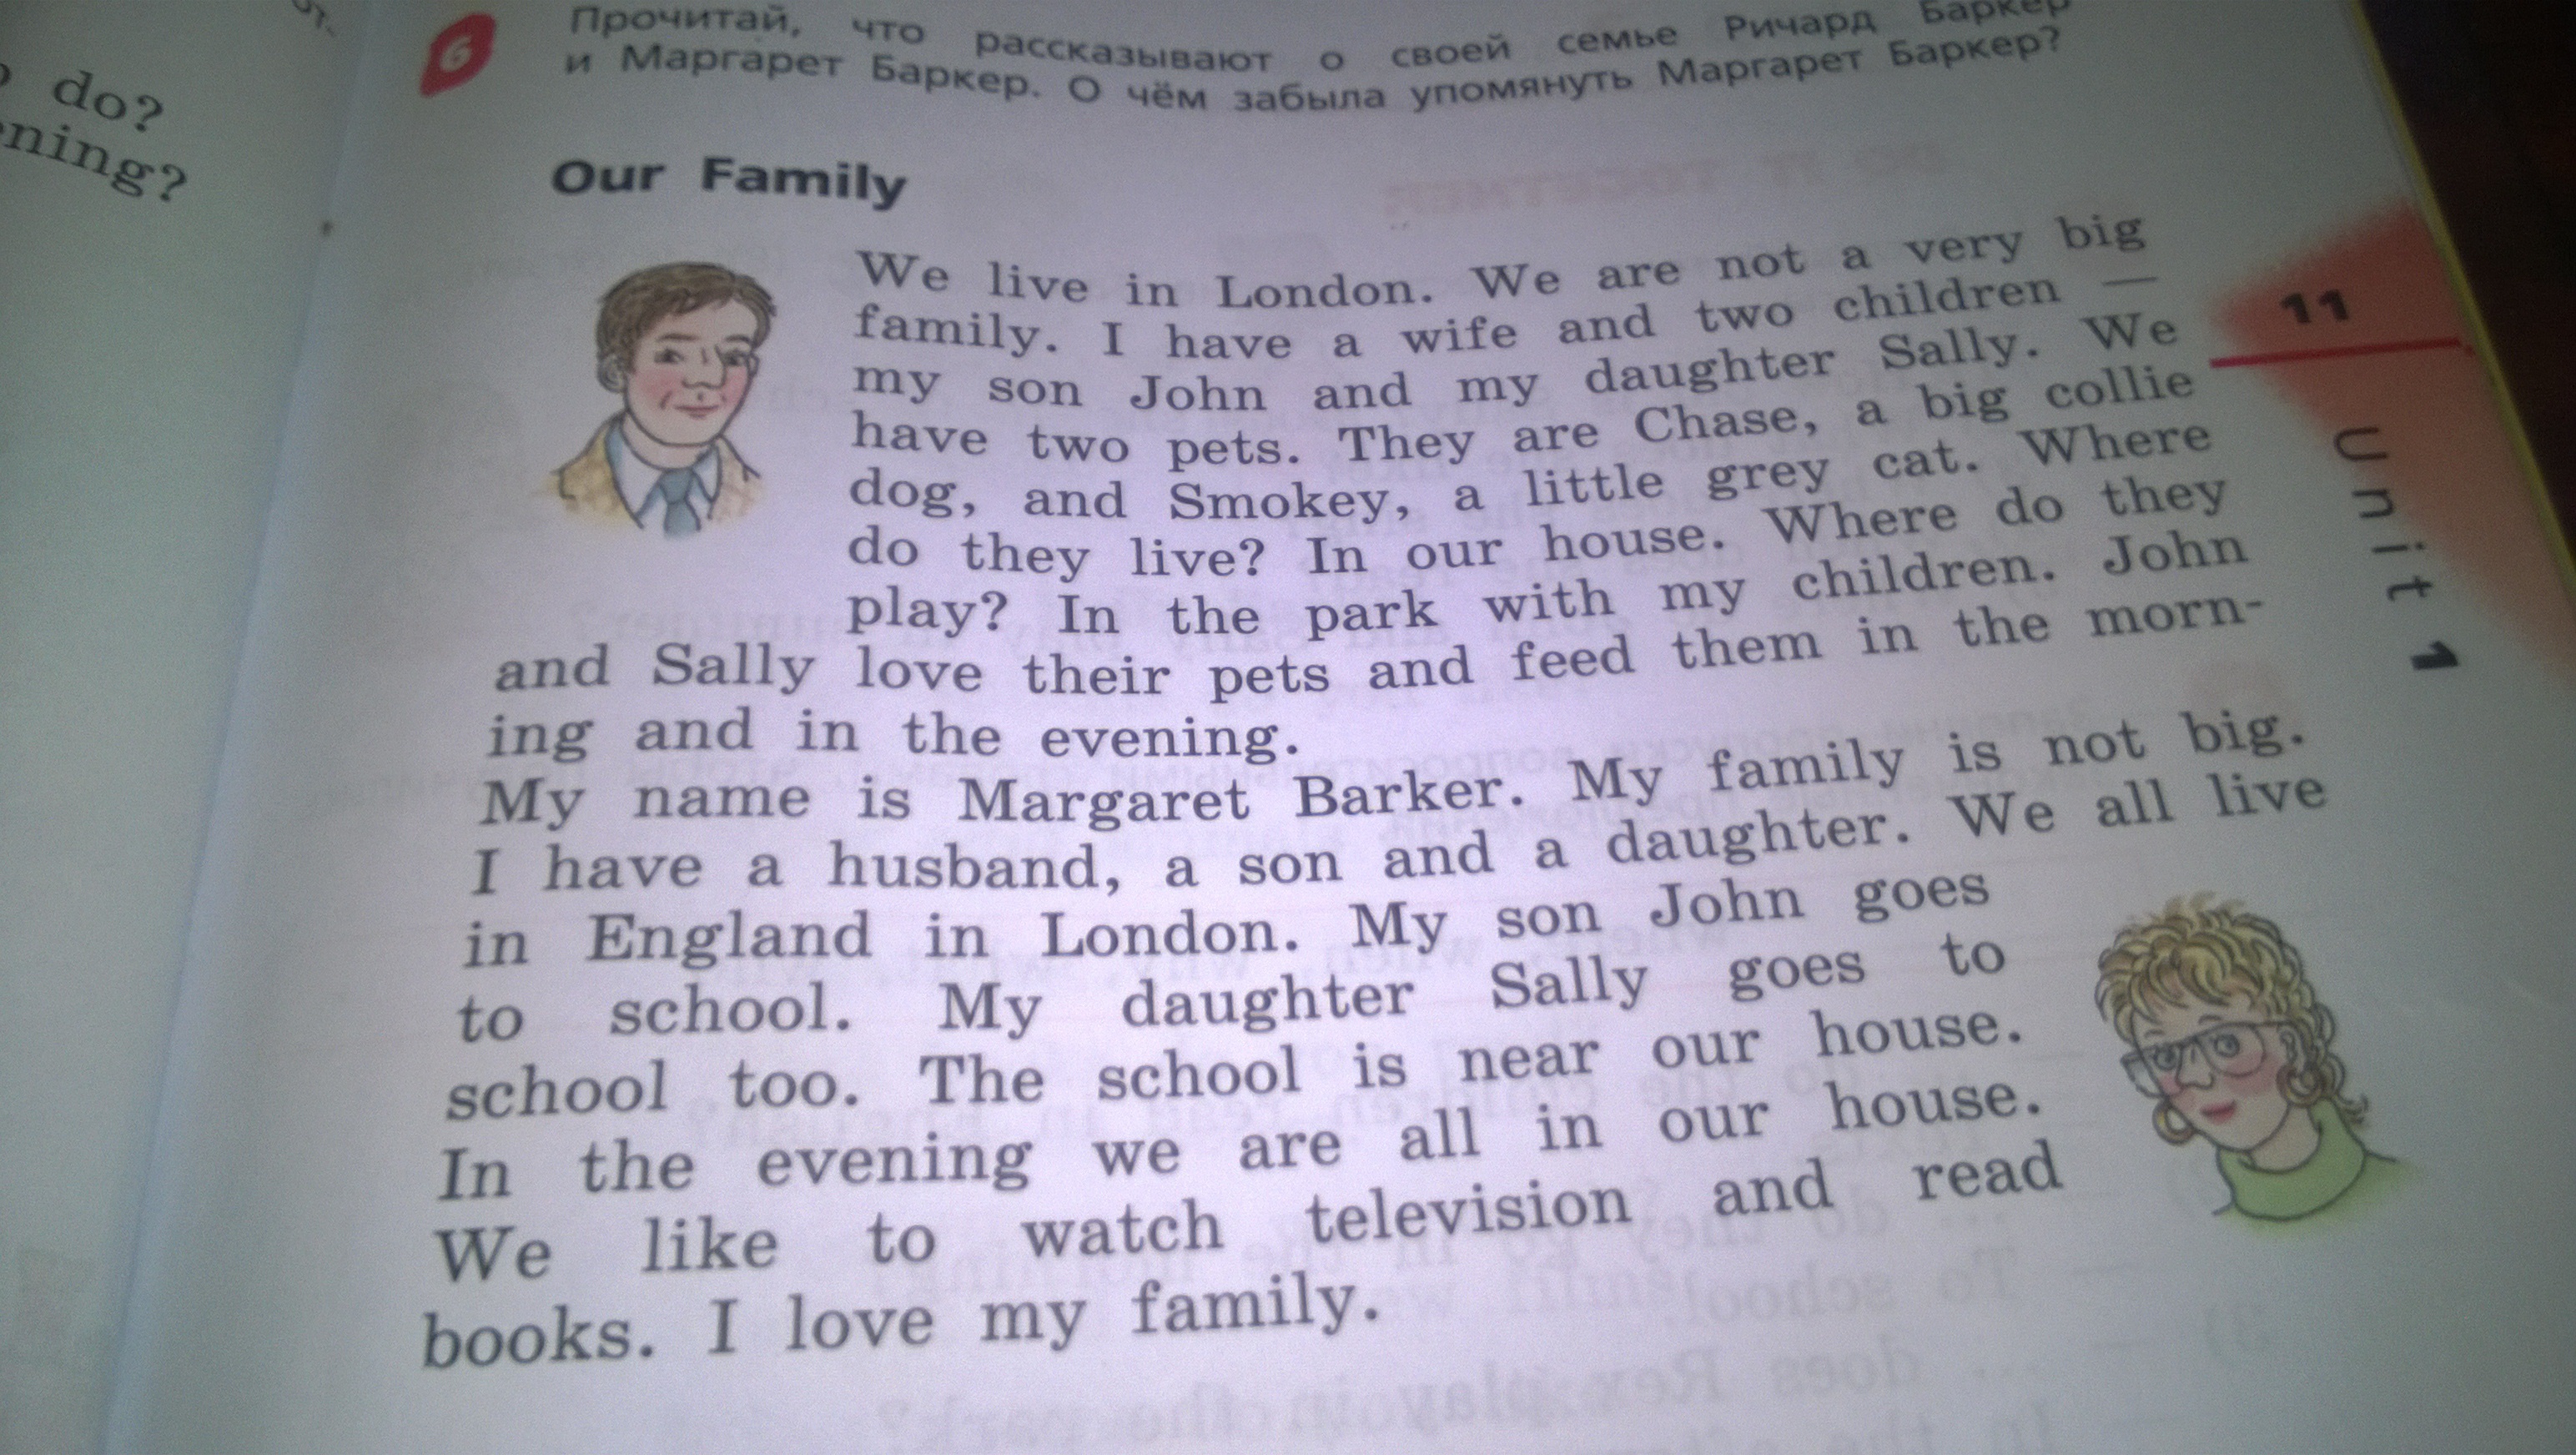 do?
ning?
6
Прочитай, что рассказывают о своей семье Ричард Баркер
и Маргарет Баркер. О чём забыла упомянуть Маргарет Баркер?
Our Family
We live in London. We are not a very big
family. I have a wife and two children —
my son John and my daughter Sally. We
have two pets. They are Chase, a big collie
dog, and Smokey, a little grey cat. Where
do they live? In our house. Where do they
play? In the park with my children. John
and Sally love their pets and feed them in the morn-
ing and in the evening.
My name is Margaret Barker. My family is not big.
I have a husband, a son and a daughter. We all live
in England in London. My son John goes
to school. My daughter Sally goes to
school too. The school is near our house.
In the evening we are all in our house.
We like to watch television and read
books. I love my family.
11
Unit 1